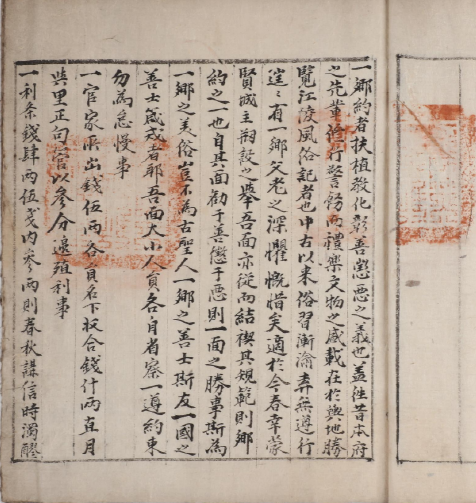 一鄕約者扶植敎化彰善懲惡之義也盖徃昔本府
之先軰修行警飭而禮樂文物之盛載在於輿地勝
覽江陵風俗記者也中古以來俗習漸渝弃無遵行
迬〻有一鄕父老之深懼慨惜矣適於今春幸蒙
賢城主朔設之擧吾面亦從而結禊其規範則鄕
約之一也自其面勸于善懲于惡則一面之勝事斯爲
一鄕之美俗豈不爲古聖人一鄕之善士斯友一國之
善士感戒者耶吾面大小人員各自省察一遵約束
勿爲怠慢事
一官家所出錢伍兩各員名下收合錢什兩直月
與里正句管以參分邊殖利事
一利条錢肆兩伍戔內參兩則春秋講信時濁醪